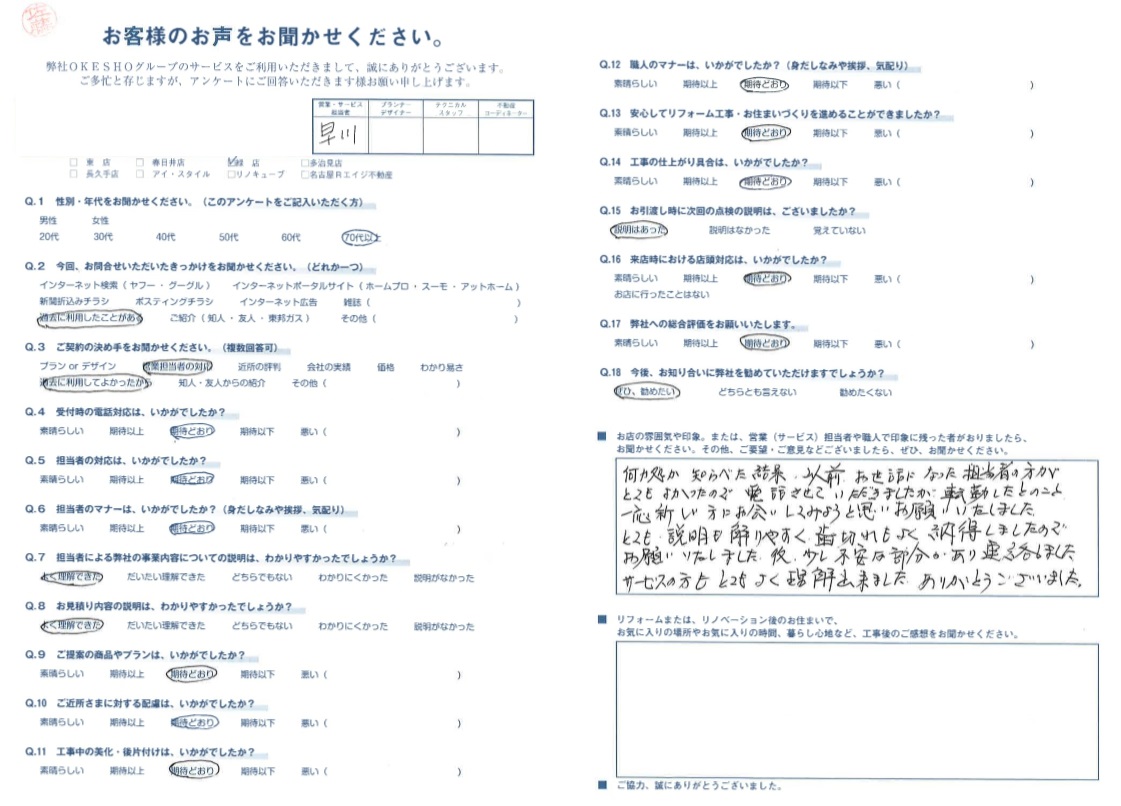 お客様のお声をお聞かせください。
弊社OKESHOグループのサービスをご利用いただきまして、誠にありがとうございます。
ご多忙と存じますが、アンケートにご回答いただきます様お願い申し上げます。
営業・サービス担当者 プランナーデザイナー テクニカルスタッフ 不動産コーディネーター
早川
□ 東 店 □ 春日井店 ☑緑 店 □多治見店
□ 長久手店 □ アイ・スタイル □リノキューブ □名古屋Rエイジ不動産
Q.1 性別・年代をお聞かせください。(このアンケートをご記入いただく方)
男性 女性
20代 30代 40代 50代 60代 70代以上
Q.2 今回、お問合せいただいたきっかけをお聞かせください。(どれか一つ)
インターネット検索(ヤフー・グーグル) インターネットポータルサイト(ホームプロ・スーモ・アットホーム)
新聞折込みチラシ ポスティングチラシ インターネット広告 雑誌( )
過去に利用したことがある ご紹介(知人・友人・東邦ガス) その他( )
Q.3 ご契約の決め手をお聞かせください。(複数回答可)
プラン or デザイン 営業担当者の対応 近所の評判 会社の実績 価格 わかり易さ
過去に利用してよかったから 知人・友人からの紹介 その他( )
Q.4 受付時の電話対応は、いかがでしたか?
素晴らしい 期待以上 期待どおり 期待以下 悪い( )
Q.5 担当者の対応は、いかがでしたか?
素晴らしい 期待以上 期待どおり 期待以下 悪い( )
Q.6 担当者のマナーは、いかがでしたか?(身だしなみや挨拶、気配り)
素晴らしい 期待以上 期待どおり 期待以下 悪い( )
Q.7 担当者による弊社の事業内容についての説明は、わかりやすかったでしょうか?
よく理解できた だいたい理解できた どちらでもない わかりにくかった 説明がなかった
Q.8 お見積り内容の説明は、わかりやすかったでしょうか?
よく理解できた だいたい理解できた どちらでもない わかりにくかった 説明がなかった
Q.9 ご提案の商品やプランは、いかがでしたか?
素晴らしい 期待以上 期待どおり 期待以下 悪い( )
Q.10 ご近所さまに対する配慮は、いかがでしたか?
素晴らしい 期待以上 期待どおり 期待以下 悪い( )
Q.11 工事中の美化・後片付けは、いかがでしたか?
素晴らしい 期待以上 期待どおり 期待以下 悪い( )
Q.12 職人のマナーは、いかがでしたか?(身だしなみや挨拶、気配り)
素晴らしい 期待以上 期待どおり 期待以下 悪い( )
Q.13 安心してリフォーム工事・お住まいづくりを進めることができましたか?
素晴らしい 期待以上 期待どおり 期待以下 悪い( )
Q.14 工事の仕上がり具合は、いかがでしたか?
素晴らしい 期待以上 期待どおり 期待以下 悪い( )
Q.15 お引渡し時に次回の点検の説明は、ございましたか?
説明はあった 説明はなかった 覚えていない
Q.16 来店時における店頭対応は、いかがでしたか?
素晴らしい 期待以上 期待どおり 期待以下 悪い( )
お店に行ったことはない
Q.17 弊社への総合評価をお願いいたします。
素晴らしい 期待以上 期待どおり 期待以下 悪い( )
Q.18 今後、お知り合いに弊社を勧めていただけますでしょうか?
ぜひ、勧めたい どちらとも言えない 勧めたくない
■ お店の雰囲気や印象。または、営業(サービス)担当者や職人で印象に残った者がおりましたら、
お聞かせください。その他、ご要望・ご意見などございましたら、ぜひ、お聞かせください。
何カ処か 知らべた結果、以前 お世話になった担当者の方が
とても よかったので 電話させて いただきましたが 転勤したとのこと
一応 新しい方にお会いしてみようと思いお願いいたしました
とても 説明も解りやすく 歯切れもよく 納得しましたので
お願いいたしました 後、少し不安な部分があり連絡しました
サービスの方も とてもよく理解出来ました ありがとうございました。
■ リフォームまたは、リノベーション後のお住まいで、
お気に入りの場所やお気に入りの時間、暮らし心地など、工事後のご感想をお聞かせください。
■ ご協力、誠にありがとうございました。